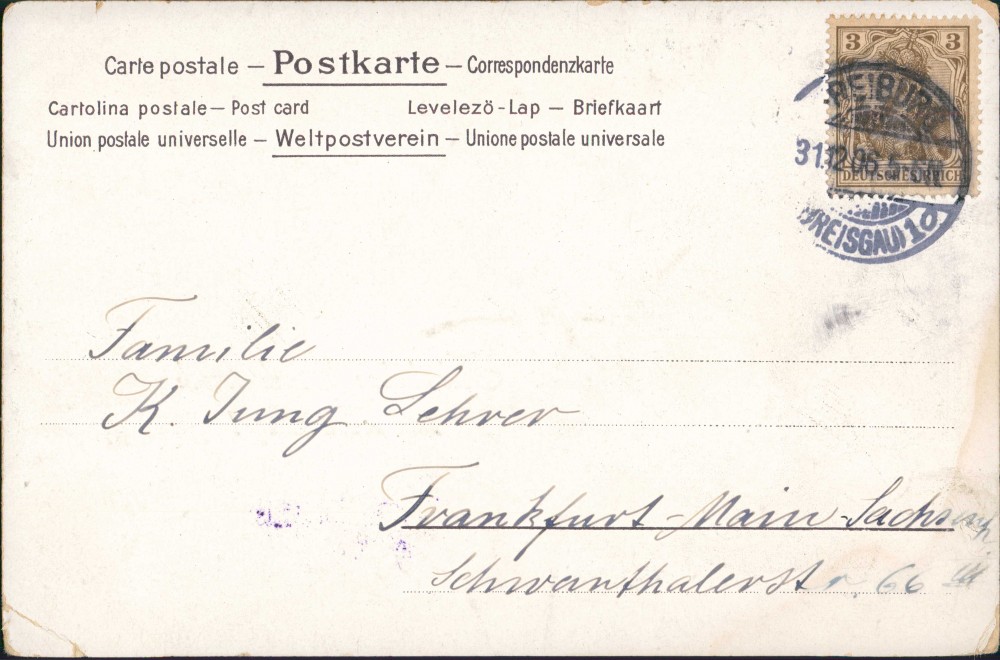 Carte postale — Postkarte — Correspondenzkarte
Cartolina postale — Post card Levelezö-Lap — Briefkaart
Union postale universelle — Weltpostverein — Unione postale universale
3 3
DEUTSCHES REICH
FREIBURG
31.12.06.5-6N
(BREISGAU) 1d
Familie
K. Jung Lehrer
Frankfurt-Main-Sachsenh
Schwanthalerstr 66